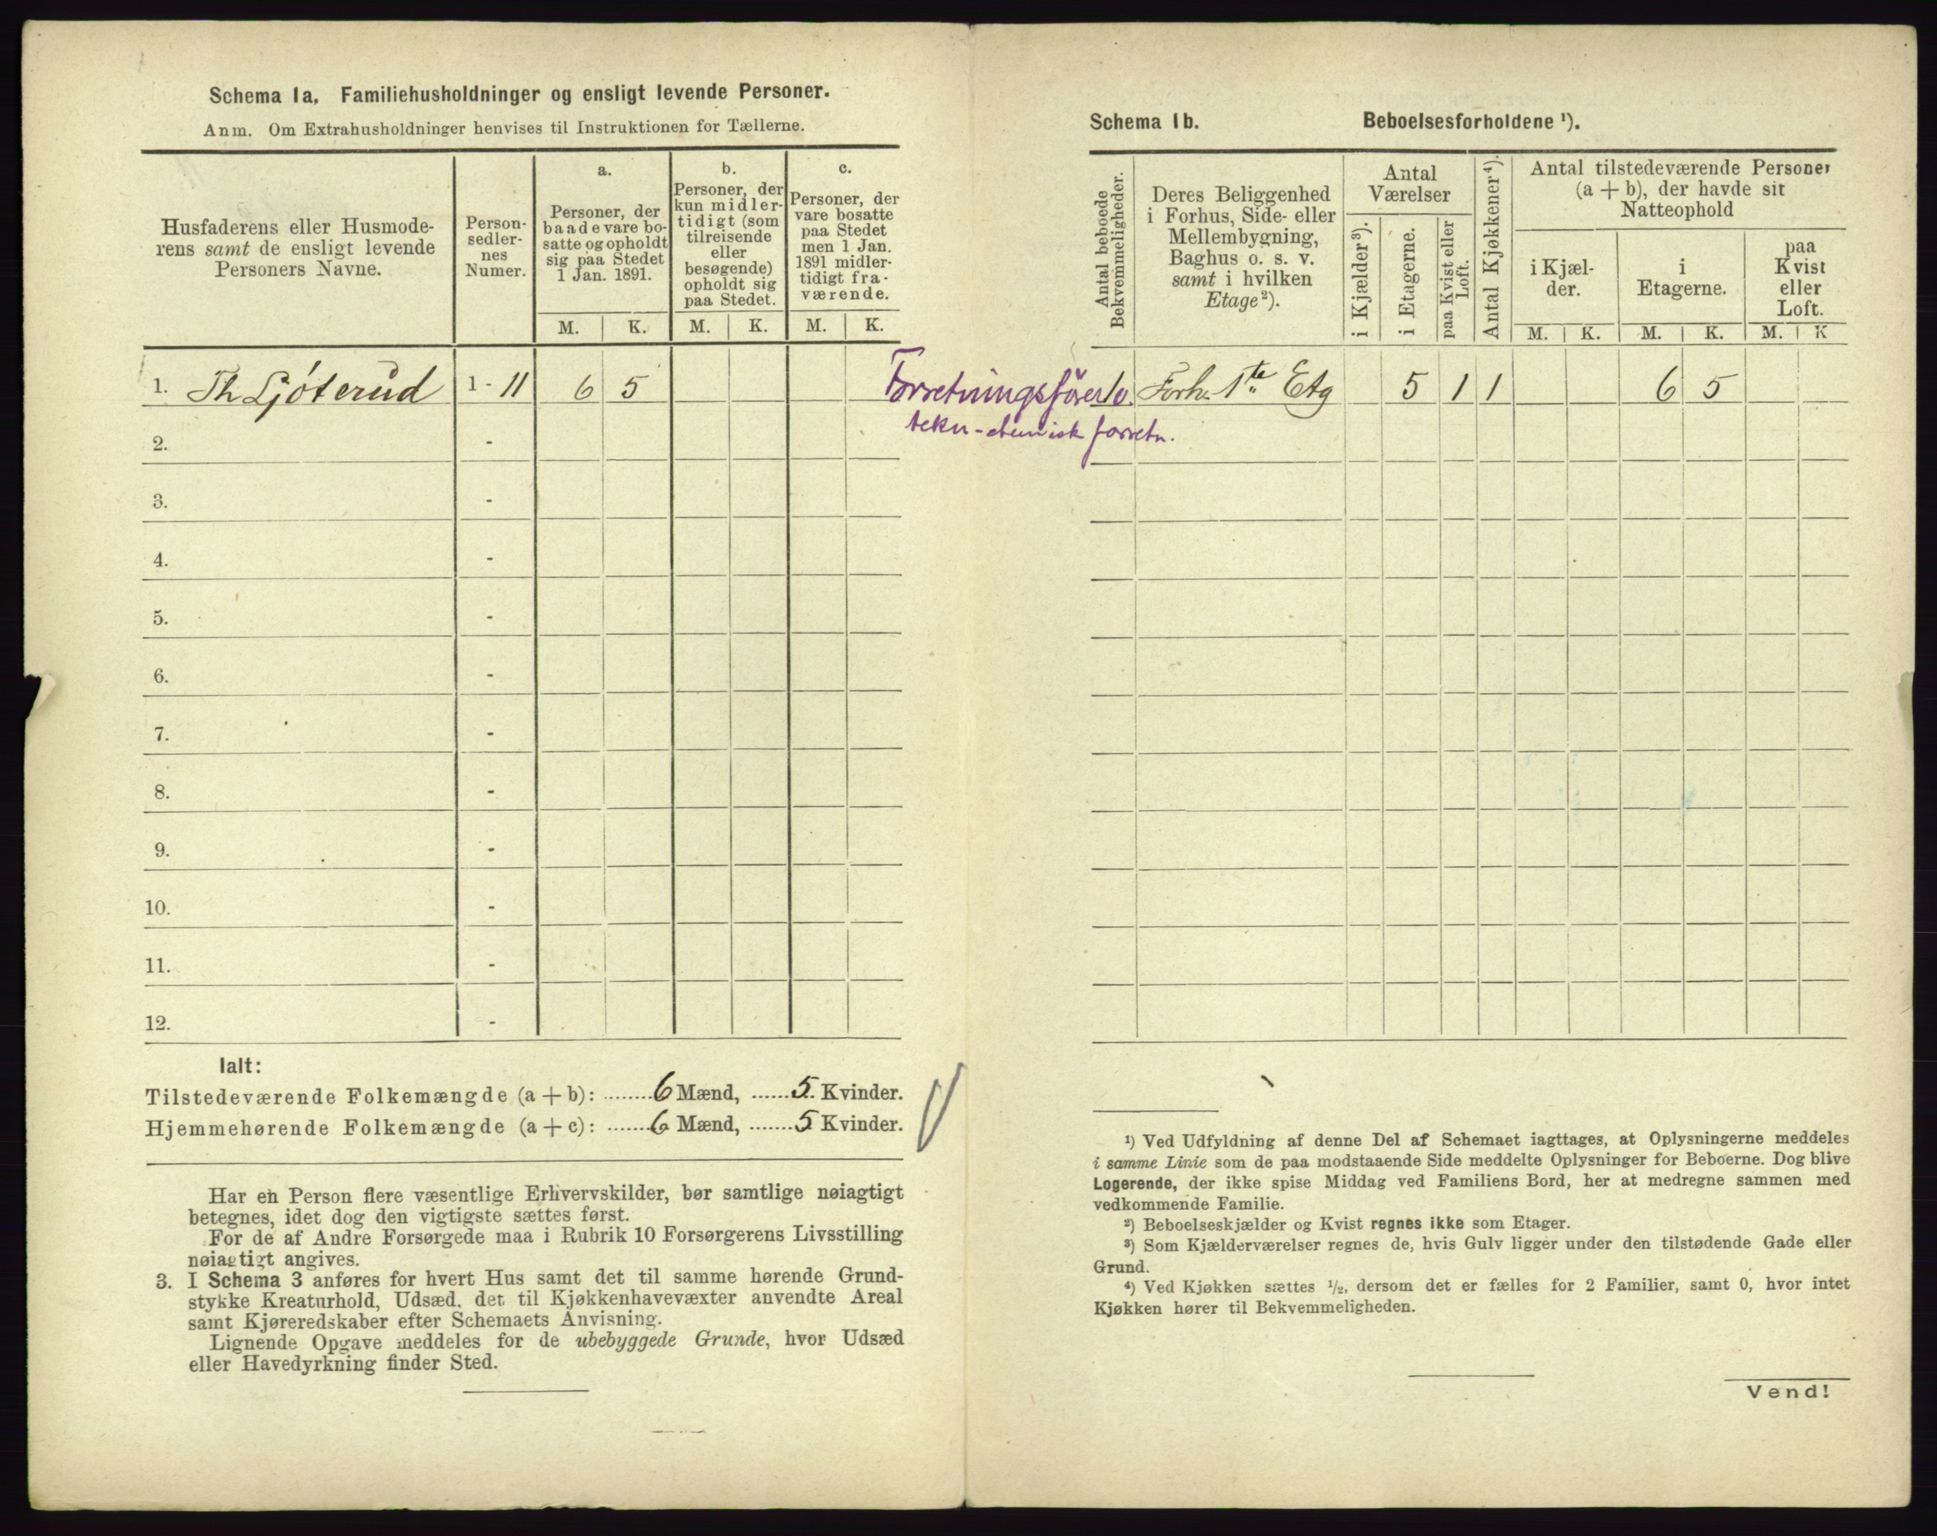 Schema 1a. Familiehusholdninger og ensligt levende Personer.
Anm. Om Extrahusholdninger henvises til Instruktionen for Tællerne.
Husfaderens eller Husmode-
rens samt de ensligt levende
Personers Navne.
Person-
sedler-
nes
Numer.
a.
Personer, der
baade vare bo-
satte og opholdt
sig paa Stedet
1 Jan. 1891.
b.
Personer, der
kun midler-
tidigt (som
tilreisende
eller
besøgende)
opholdt sig
paa Stedet.
c.
Personer, der
vare bosatte
paa Stedet
men 1 Jan.
1891 midler-
tidigt fra-
værende.
M. K. M. K. M. K.
1. Th Ljøterud 1 - 11 6 5
2. -
3. -
4. -
5. -
6. -
7. -
8. -
9. -
10. -
11. -
12. -
Ialt:
Tilstedeværende Folkemængde (a + b): 6 Mænd, 5. Kvinder.
Hjemmehørende Folkemængde (a + c): 6 Mænd, 5 Kvinder.
Har en Person flere væsentlige Erhvervskilder, bør samtlige nøiagtigt
betegnes, idet dog den vigtigste sættes først.
For de af Andre Forsørgede maa i Rubrik 10 Forsørgerens Livsstilling
nøiagtigt angives.
3. I Schema 3 anføres for hvert Hus samt det til samme hørende Grund-
stykke Kreaturhold, Udsæd, det til Kjøkkenhavevæxter anvendte Areal
samt Kjøreredskaber efter Schemaets Anvisning.
Lignende Opgave meddeles for de ubebyggede Grunde, hvor Udsæd
eller Havedyrkning finder Sted.
Schema 1b. Beboelsesforholdene ¹).
Antal beboede
Bekvemmeligheder.
Deres Beliggenhed
i Forhus, Side- eller
Mellembygning,
Baghus o. s. v.
samt i hvilken
Etage ²).
Antal
Værelser
i Kjælder ³).
i Etagerne.
paa Kvist eller
Loft.
Antal Kjøkkener ⁴).
Antal tilstedeværende Personer
(a + b), der havde sit
Natteophold
i Kjæl-
der.
i
Etagerne.
paa
Kvist
eller
Loft.
M. K. M. K. M. K
Forretningsfører
tekn-chemisk forretn.
Forh. 1te Etg 5 1 1 6 5
¹) Ved Udfyldning af denne Del af Schemaet iagttages, at Oplysningerne meddeles
i samme Linie som de paa modstaaende Side meddelte Oplysninger for Beboerne. Dog blive
Logerende, der ikke spise Middag ved Familiens Bord, her at medregne sammen med
vedkommende Familie.
²) Beboelseskjælder og Kvist regnes ikke som Etager.
³) Som Kjælderværelser regnes de, hvis Gulv ligger under den tilstødende Gade eller
Grund.
⁴) Ved Kjøkken sættes ½, dersom det er fælles for 2 Familier, samt 0, hvor intet
Kjøkken hører til Bekvemmeligheden.
Vend!